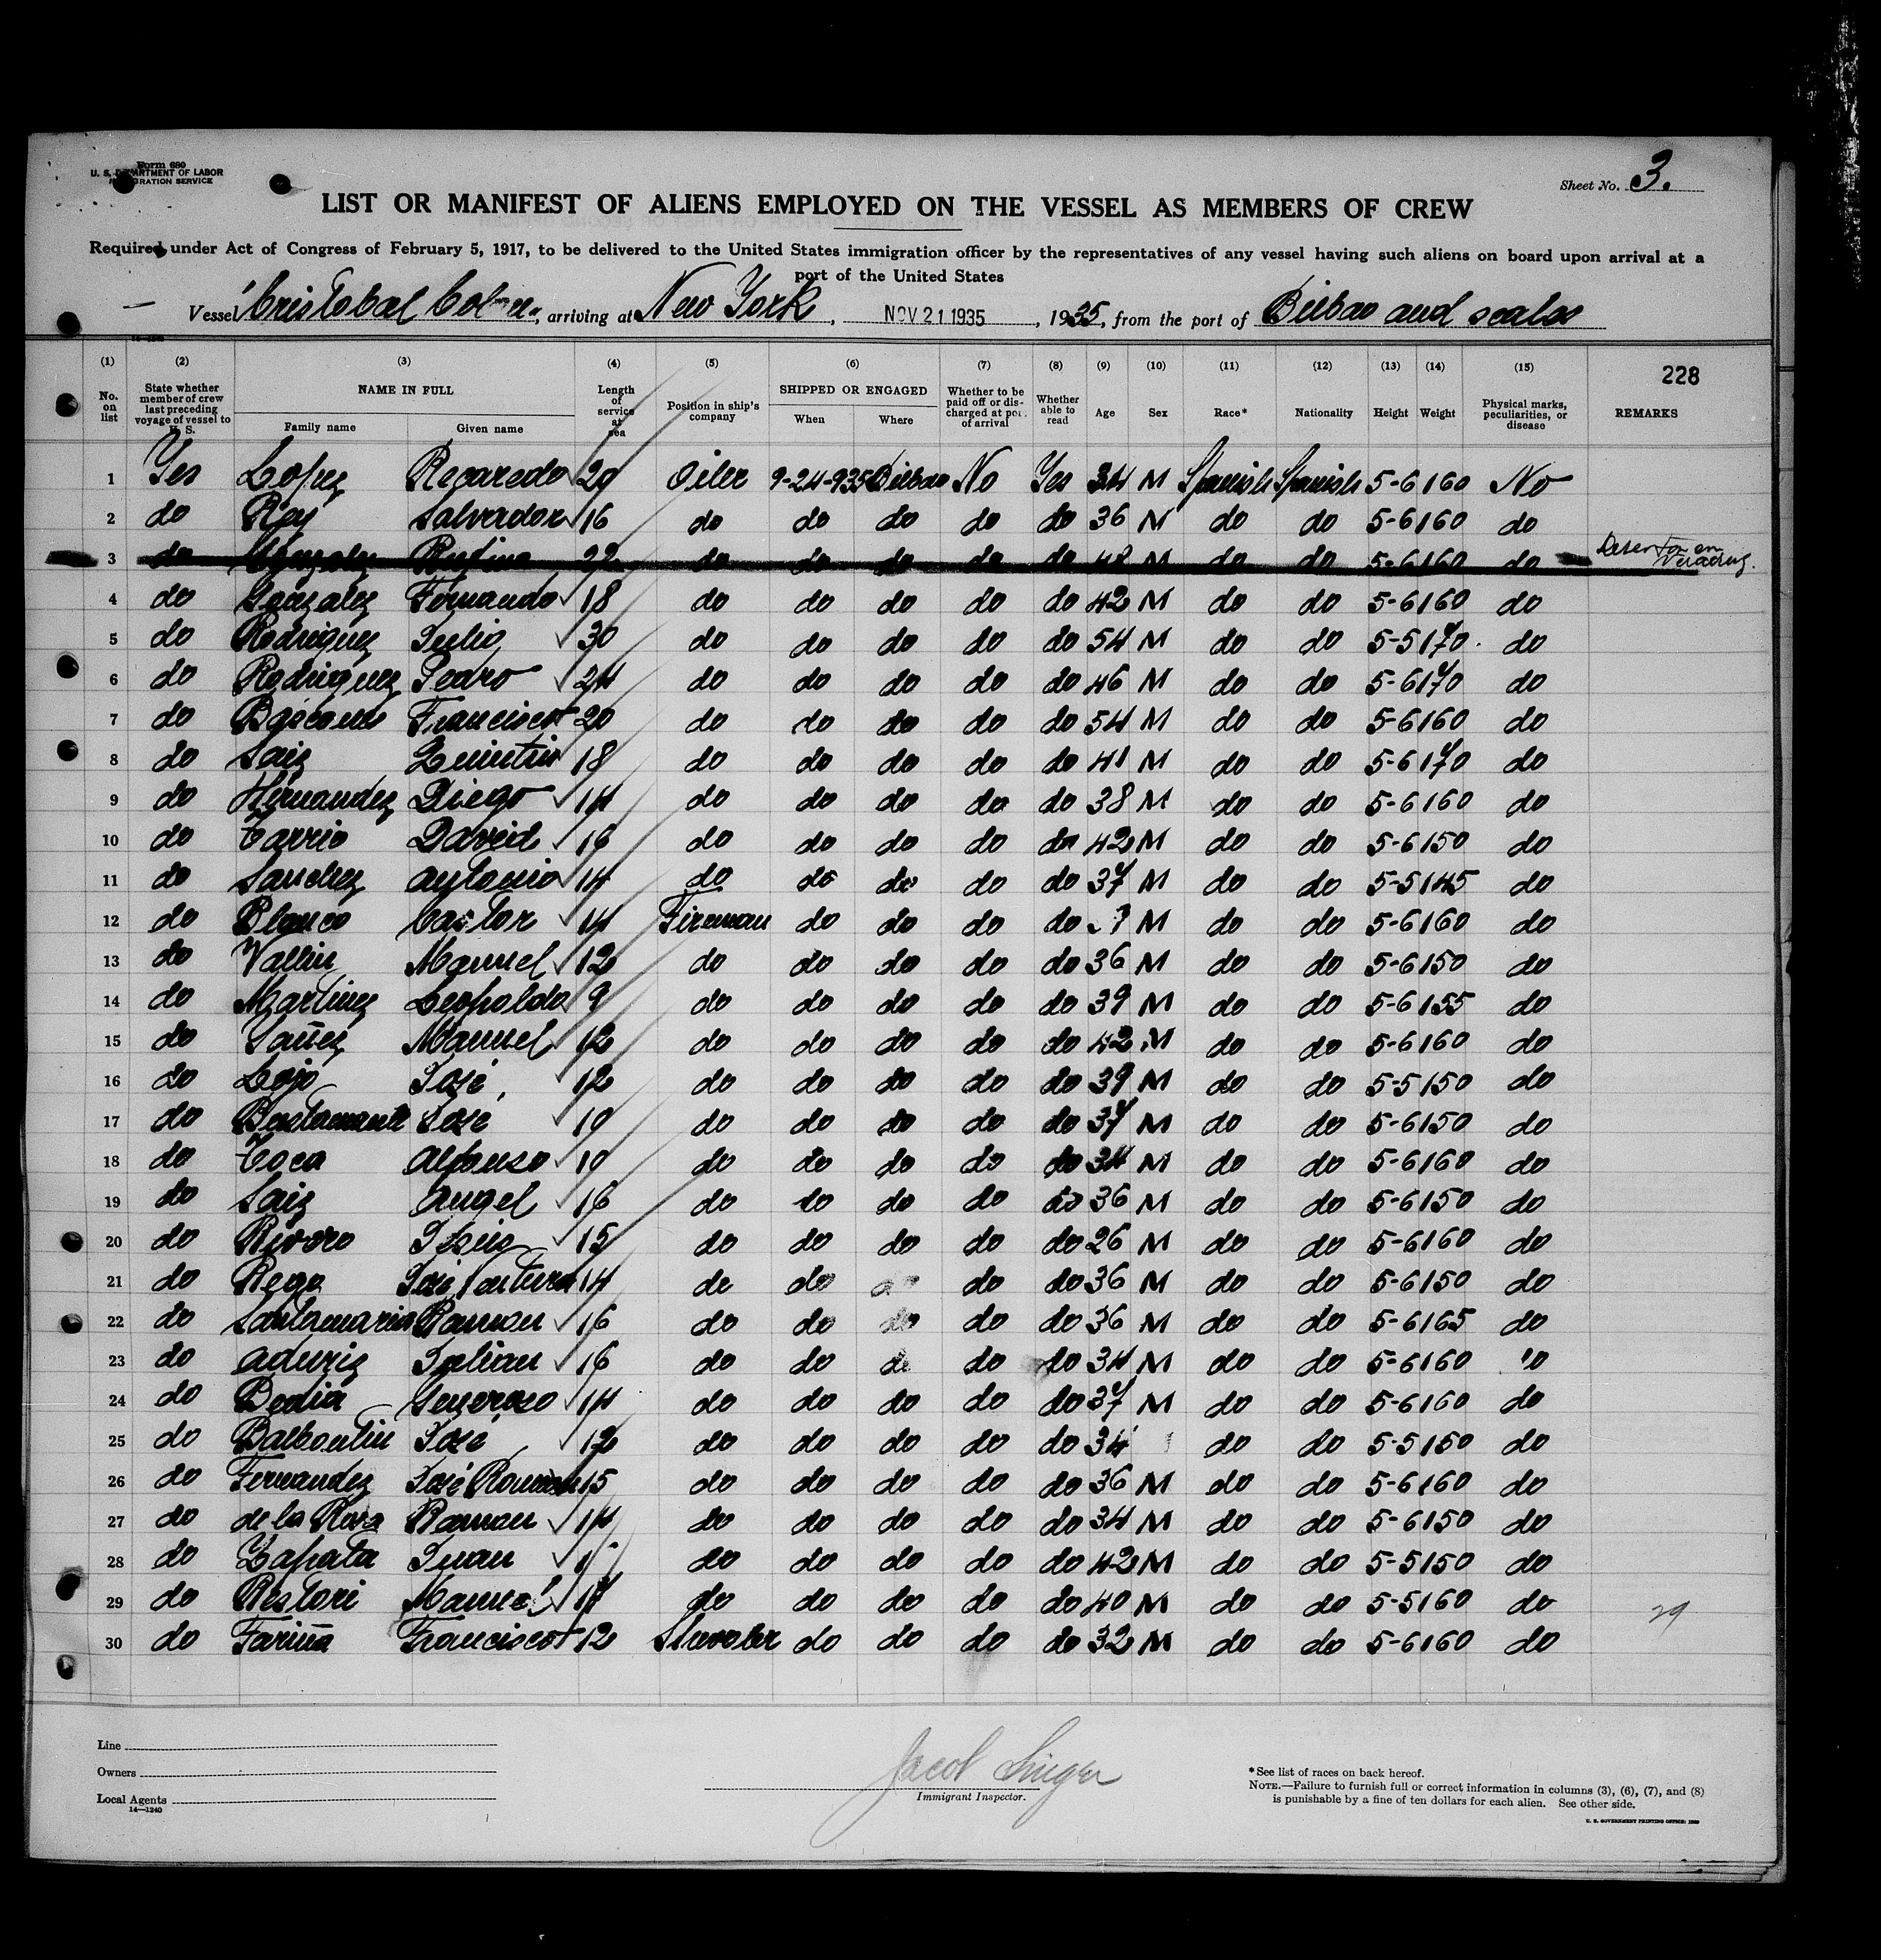 Form 680
U. S. DEPARTMENT OF LABOR
IMMIGRATION SERVICE
Sheet No. 3.
LIST OR MANIFEST OF ALIENS EMPLOYED ON THE VESSEL AS MEMBERS OF CREW
Required under Act of Congress of February 5, 1917, to be delivered to the United States immigration officer by the representatives of any vessel having such aliens on board upon arrival at a
port of the United States
Vessel Cristobal Colon, arriving at New York, NOV 21 1935, 1935, from the port of Bilbao and scalas
(1) (2) (3) (4) (5) (6) (7) (8) (9) (10) (11) (12) (13) (14) (15)
No. on list State whether member of crew last preceding voyage of vessel to U. S. NAME IN FULL Family name Given name Length of service at sea Position in ship's company SHIPPED OR ENGAGED When Where Whether to be paid off or discharged at port of arrival Whether able to read Age Sex Race* Nationality Height Weight Physical marks, peculiarities, or disease REMARKS 228
1 Yes Lopez Recaredo 20 Oiler 9-24-935 Bilbao No Yes 34 M Spanish Spanish 5-6 160 No
2 do Rey Salvador 16 do do do do do 36 M do do 5-6 160 do
3 do Gonzalez Rufino 22 do do do do do 48 M do do 5-6 160 do Desertor en Veracruz.
4 do Gonzalez Fernando 18 do do do do do 42 M do do 5-6 160 do
5 do Rodriguez Julio 30 do do do do do 54 M do do 5-5 170 do
6 do Rodriguez Pedro 24 do do do do do 46 M do do 5-6 170 do
7 do Francisco 20 do do do do do 54 M do do 5-6 160 do
8 do Saiz Quintin 18 do do do do do 41 M do do 5-6 170 do
9 do Hernandez Diego 14 do do do do do 38 M do do 5-6 160 do
10 do Carrio David 16 do do do do do 42 M do do 5-6 150 do
11 do Sanchez Antonio 14 do do do do do 37 M do do 5-5 145 do
12 do Blanco Castor 14 Fireman do do do do M do do 5-6 160 do
13 do Vallin Manuel 12 do do do do do 36 M do do 5-6 150 do
14 do Martinez Leopoldo 9 do do do do do 39 M do do 5-6 155 do
15 do Yañez Manuel 12 do do do do do 42 M do do 5-6 160 do
16 do Lojo José 12 do do do do do 39 M do do 5-5 150 do
17 do Bustamante José 10 do do do do do 37 M do do 5-6 150 do
18 do Coca Alfonso 10 do do do do do 34 M do do 5-6 160 do
19 do Saiz Angel 16 do do do do do 36 M do do 5-6 150 do
20 do Rivero Jesus 15 do do do do do 26 M do do 5-6 160 do
21 do Rego José Ventura 14 do do do do do 36 M do do 5-6 150 do
22 do Santamaria Ramon 16 do do do do do 36 M do do 5-6 165 do
23 do Aduriz Julian 16 do do do do do 34 M do do 5-6 160 do
24 do Bedia Generoso 14 do do do do do 37 M do do 5-6 160 do
25 do Balboutin José 12 do do do do do 34 do do 5-5 150 do
26 do Fernandez José Ramon 15 do do do do do 36 M do do 5-6 160 do
27 do de la Rosa Ramon 14 do do do do do 34 M do do 5-6 150 do
28 do Zapata Juan do do do do do 42 M do do 5-5 150 do
29 do Restori Manuel 14 do do do do do 40 M do do 5-5 160 do 29
30 do Fariña Francisco 12 do do do do 32 M do do 5-6 160 do
Line
Owners
Local Agents
14—1240
Jacob Singer
Immigrant Inspector.
*See list of races on back hereof.
NOTE.—Failure to furnish full or correct information in columns (3), (6), (7), and (8)
is punishable by a fine of ten dollars for each alien. See other side.
U. S. GOVERNMENT PRINTING OFFICE: